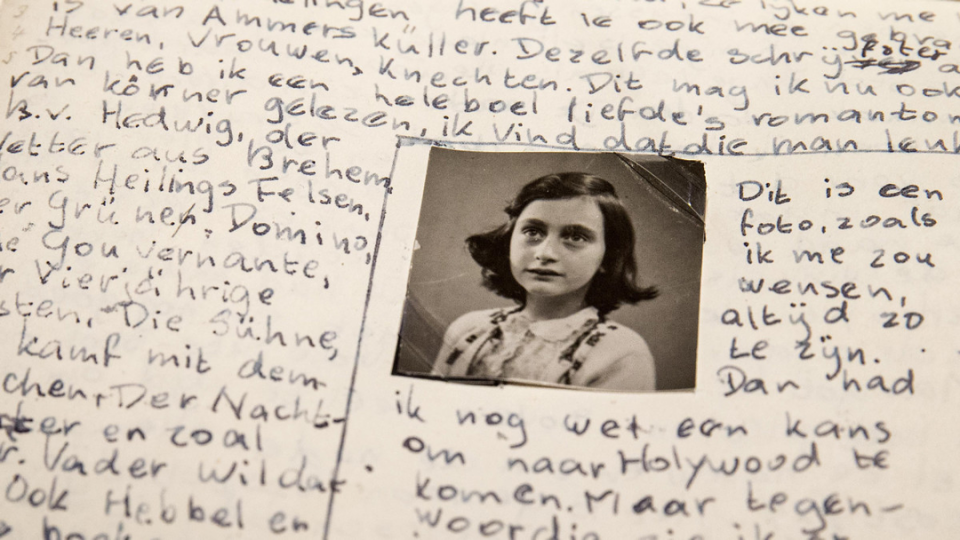 ik me
is van Ammers Küller. Dezelfde schrijfster
heeft ie ook mee gebra
Heeren, Vrouwen, Knechten. Dit mag ik nu ook
Dan heb ik een heleboel liefde's romanton
van körner gelezen, ik vind dat die man leuk
B.v. Hedwig, der
Vetter aus Brehem,
ans Heilings Felsen,
er Grünen, Domino,
Gouvernante,
r Vierjährige
sten, Die Sühne,
kamf mit dem
chen, Der Nacht-
ter en zoal
r. Vader wil dat
ook Hebbel en
Dit is een
foto, zoals
ik me zou
wensen,
altijd zo
te zijn.
Dan had
ik nog wel een kans
om naar Holywood te
komen. Maar tegen-
woordig zie ik er